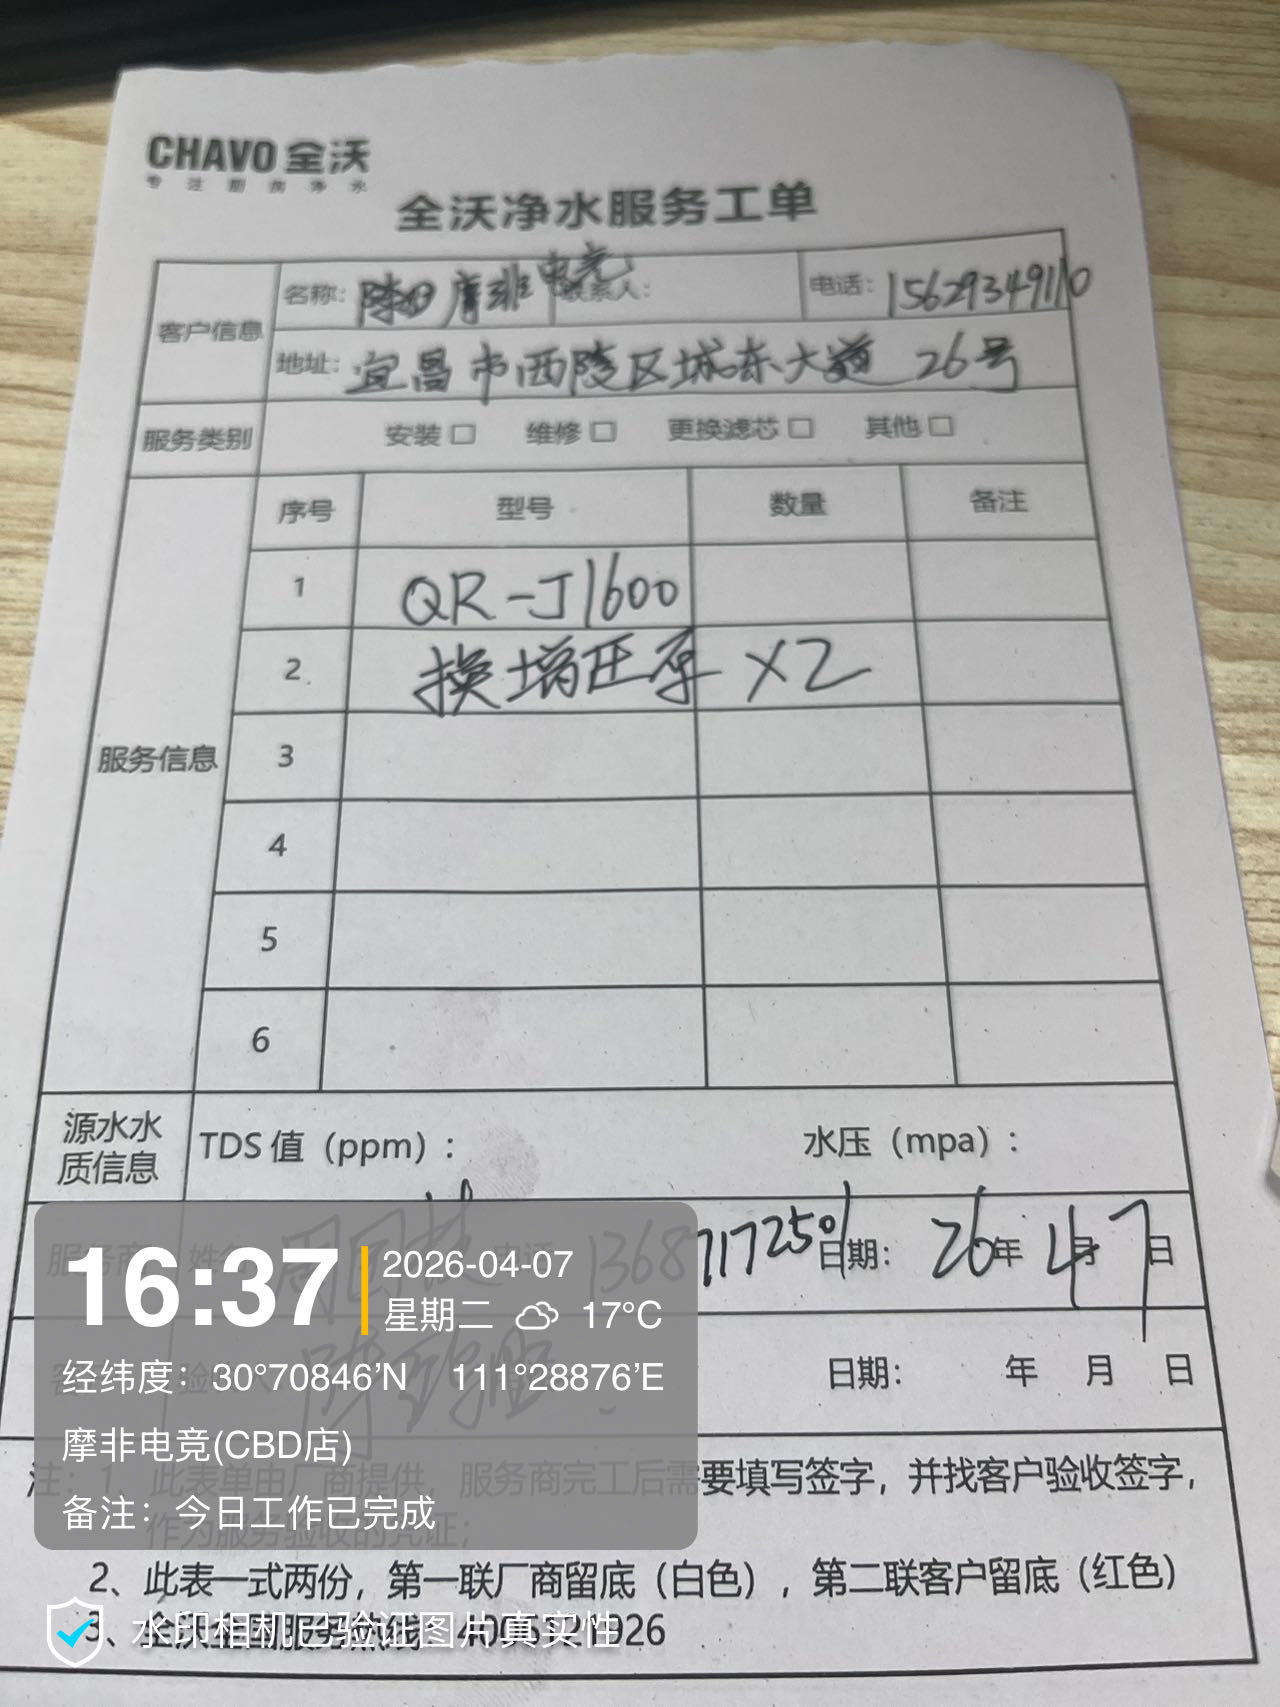 CHAVO 全沃
专注厨房净水
全沃净水服务工单
客户信息
名称: 摩非电竞 联系人: 电话: 15629349110
地址: 宜昌市西陵区城东大道 26号
服务类别 安装□ 维修□ 更换滤芯□ 其他□
服务信息
序号 型号 数量 备注
1 QR-J1600
2 换增压泵 ×2
3
4
5
6
源水水质信息 TDS 值（ppm）: 水压（mpa）:
服务商 姓名 电话 13687172501 日期: 26年 4月 7日
日期: 年 月 日
注: 1、此表单由厂商提供，服务商完工后需要填写签字，并找客户验收签字，
作为服务验收的凭证；
2、此表一式两份，第一联厂商留底（白色），第二联客户留底（红色）
3、全沃全国服务热线: 4006121926
16:37
2026-04-07
星期二 17°C
经纬度: 30°70846'N 111°28876'E
摩非电竞(CBD店)
备注: 今日工作已完成
水印相机已验证图片真实性